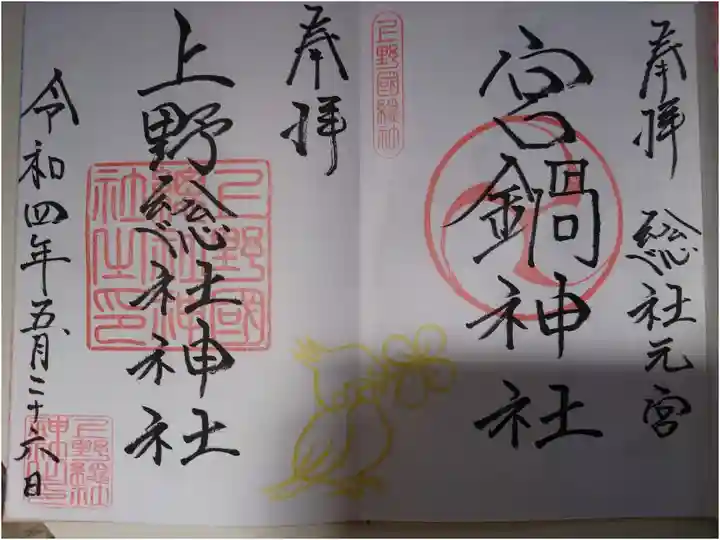 奉拝 総社元宮
宮鍋神社
上野國総社神社
奉拝
上野総社神社
上野國総社神社之印
令和四年五月二十六日